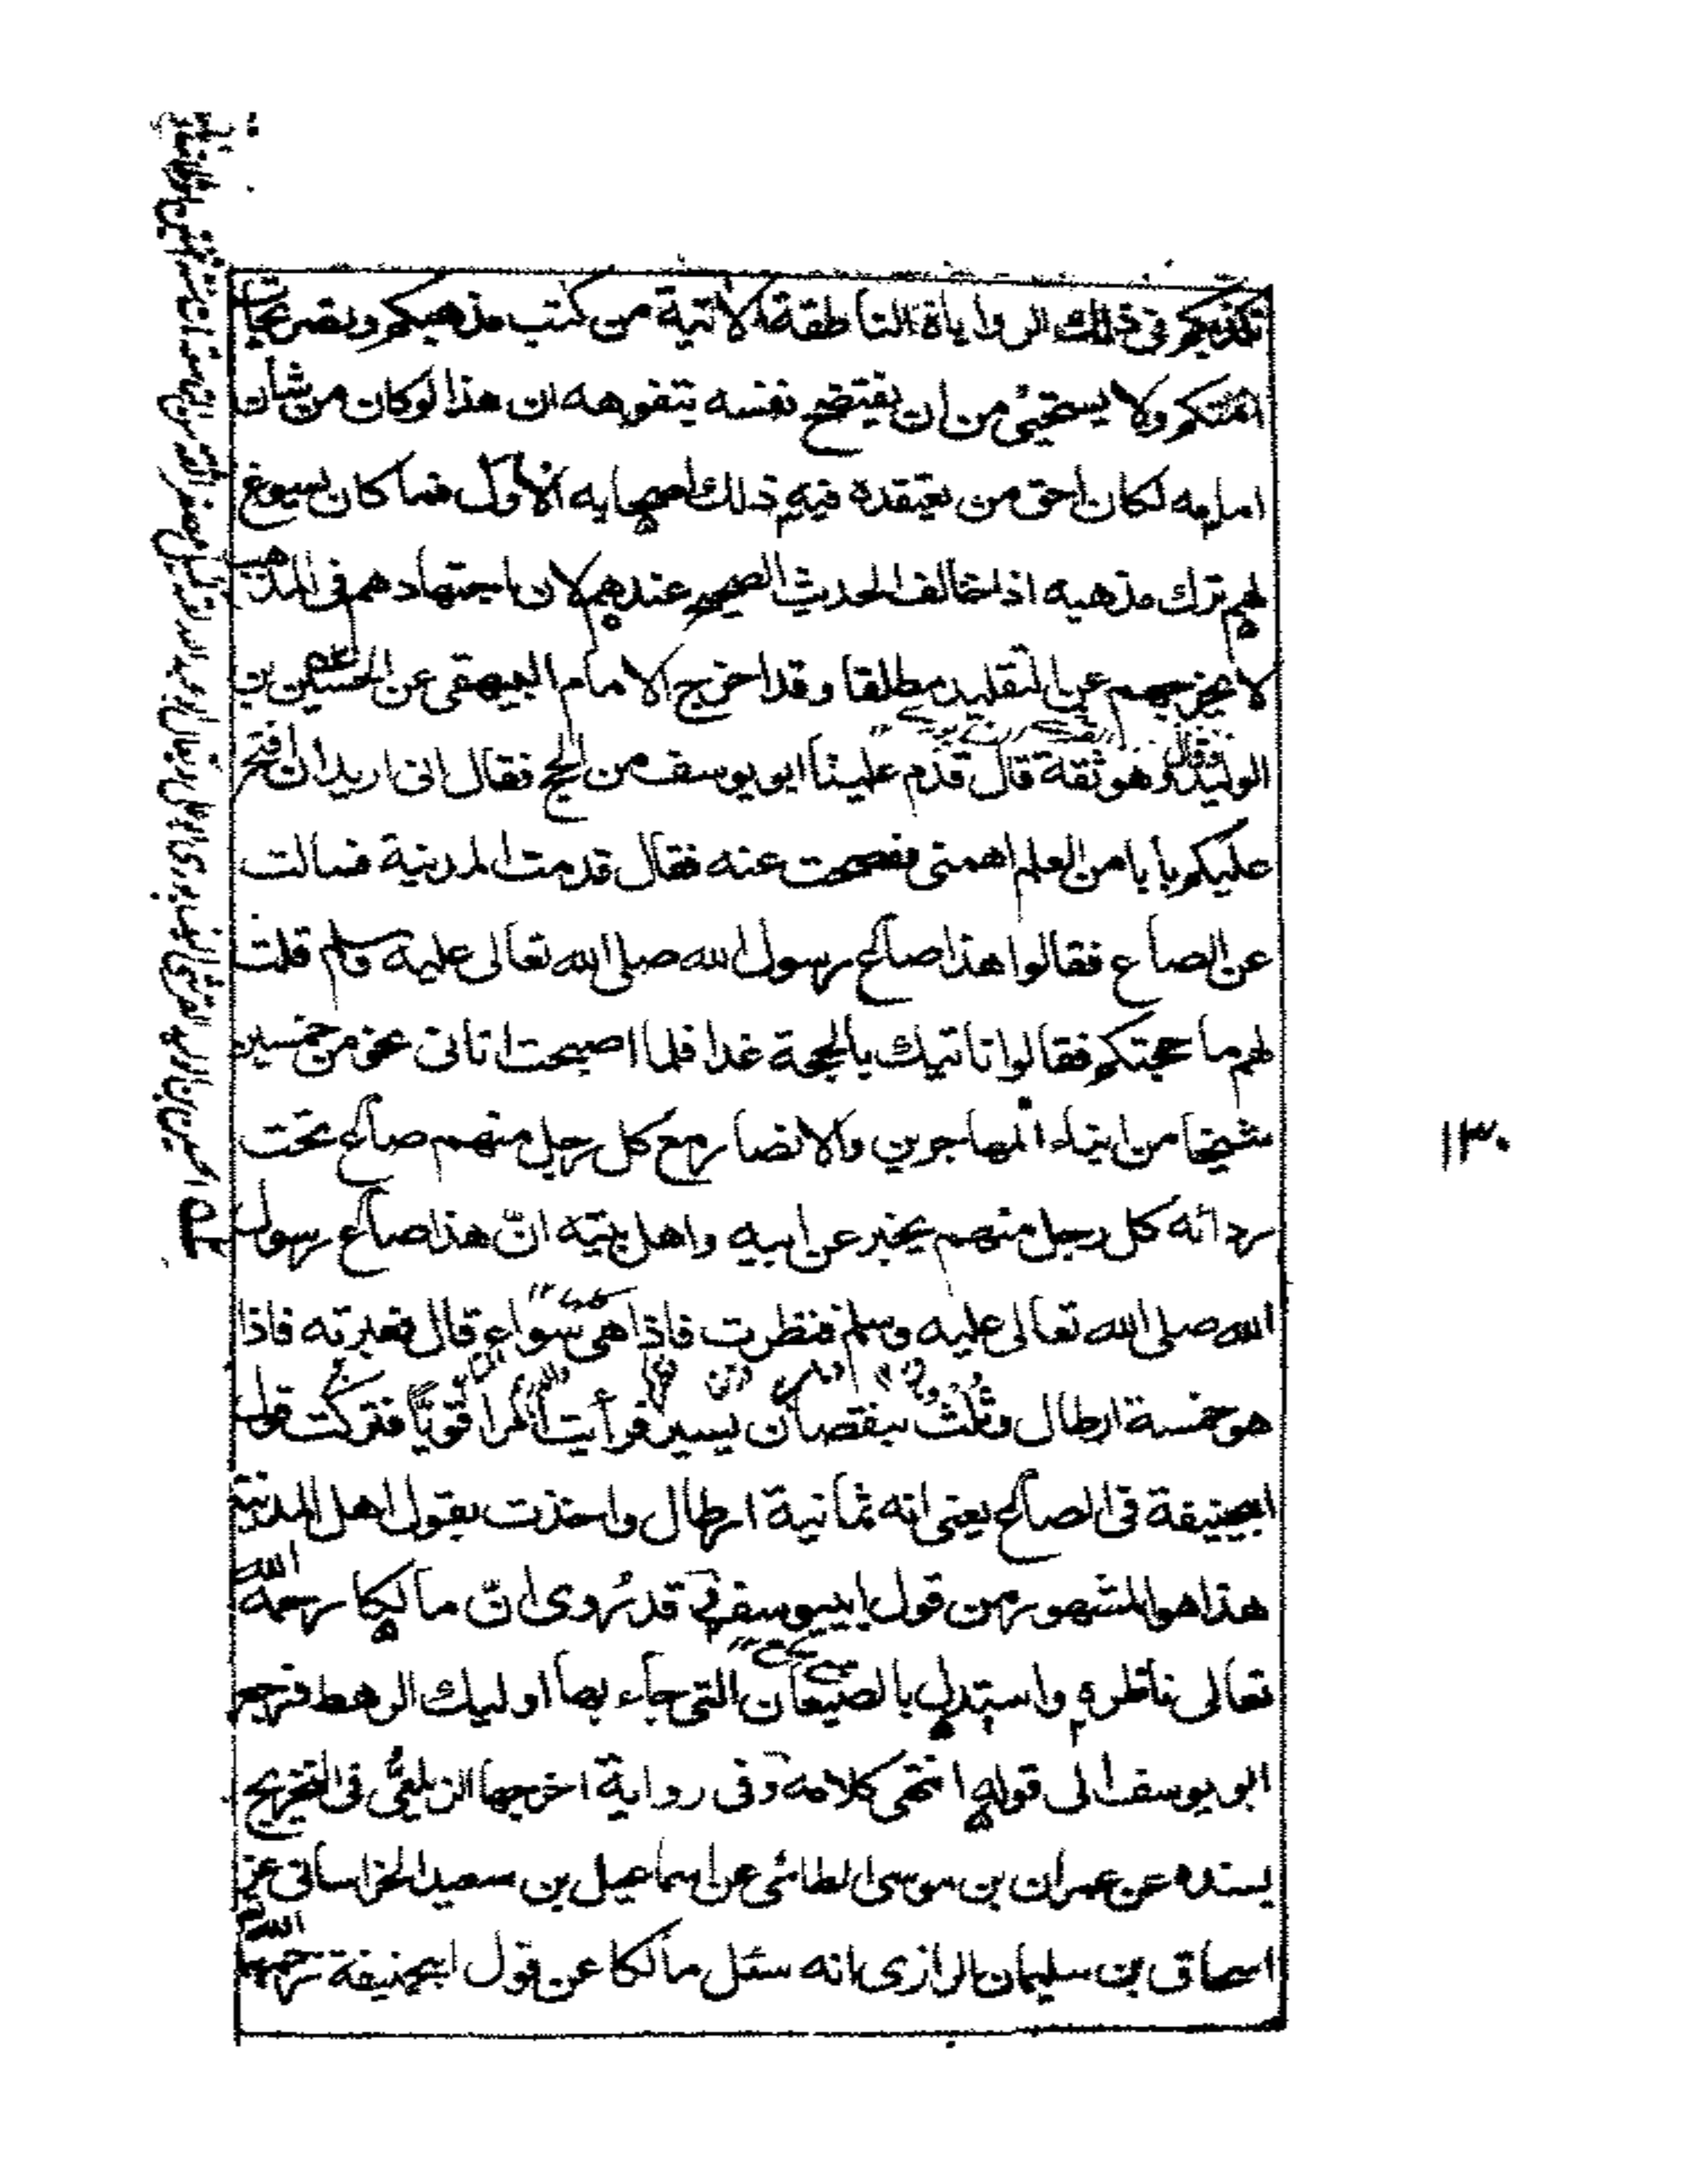 تكذبكم فى ذلك الروايأة الناطقة الاتية من كتب مذهبكم وتصريحات
ائمتكم ولا يستحيئ من ان يفتضح نفسه يتفوهه ان هذا لوكان من شأن
امامه لكان احق من يعتقده فيه ذلك اصحابه الأول فما كان يسوغ
لهم ترك مذهبه اذا خالف الحديث الصحيح عندهم لان اجتهادهم فى المذهب
لا يخرجهم عن التقليد مطلقا وقد اخرج الامام البيهقى عن الحسين بن
الوليد وهو ثقة قال قدم علينا ابو يوسف من الحج فقال انى اريد ان افتح
عليكم بأبا من العلم اهمنى ففحصت عنه فقال قدمت المدينة فسالت
عن الصاع فقالوا هذا صاع رسول الله صلى الله تعالى عليه وسلم قلت
لهم ما حجتكم فقالوا ناتيك بالحجة غدا فلما اصبحت اتانى نحو من خمسين
شيخا من ابناء المهاجرين والانصار مع كل رجل منهم صاع تحت
ردائه كل رجل منهم يخبر عن ابيه واهل بيته انّ هذا صاع رسول
الله صلى الله تعالى عليه وسلم فنظرت فاذا هى سواء قال فعيرته فاذا
هو خمسة ارطال وثُلُثُ بنقصان يسير فرأيت امرا قويًا فتركت قول
ابيحنيفة فى الصاع يعنى انه ثمانية ارطال واخذت بقول اهل المدينة
هذا هو المشهور من قول ابييوسف وقد رُوى انّ مالكا رحمه الله
تعالى ناظره واستدل بالصيعان التى جاء بها اوليك الرهط فرجع
ابو يوسف الى قوله انتهى كلامه وفى رواية اخرجها الزيلعى فى التخريج
بسنده عن عمران بن موسى الطائى عن اسماعيل بن سعيد الخراسانى عن
اسحاق بن سليمان الرازى انه سئل مالكا عن قول ابيحنيفة رحمهما الله
١٣٠